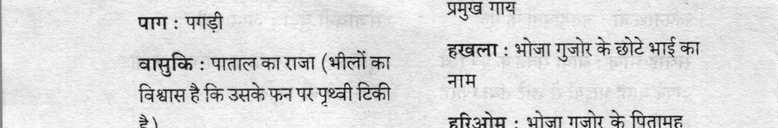 पाग : पगड़ी
वासुकि : पाताल का राजा (भीलों का
विश्वास है कि उसके फन पर पृथ्वी टिकी
है)
प्रमुख गाय
हखला : भोजा गुजोर के छोटे भाई का
नाम
हरिओम : भोजा गुजोर के पितामह